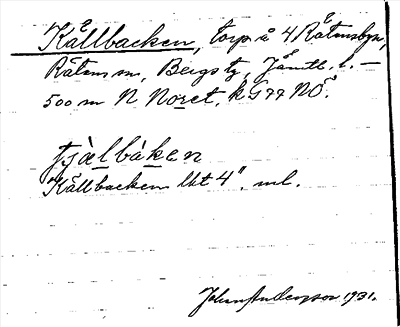 Kållbacken, torp å 4 Råtansbyn,
Råtans sn, Bergs tg, Jämtl. l. —
500 m N Noret, kG 77 NÖ.
tjàlbàken
Kållbacken lkt 4", ml.
Johan Anderson 1931.